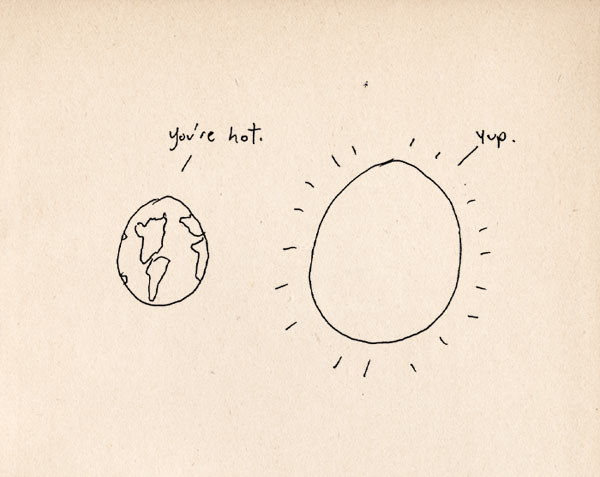 you're hot.
yup.